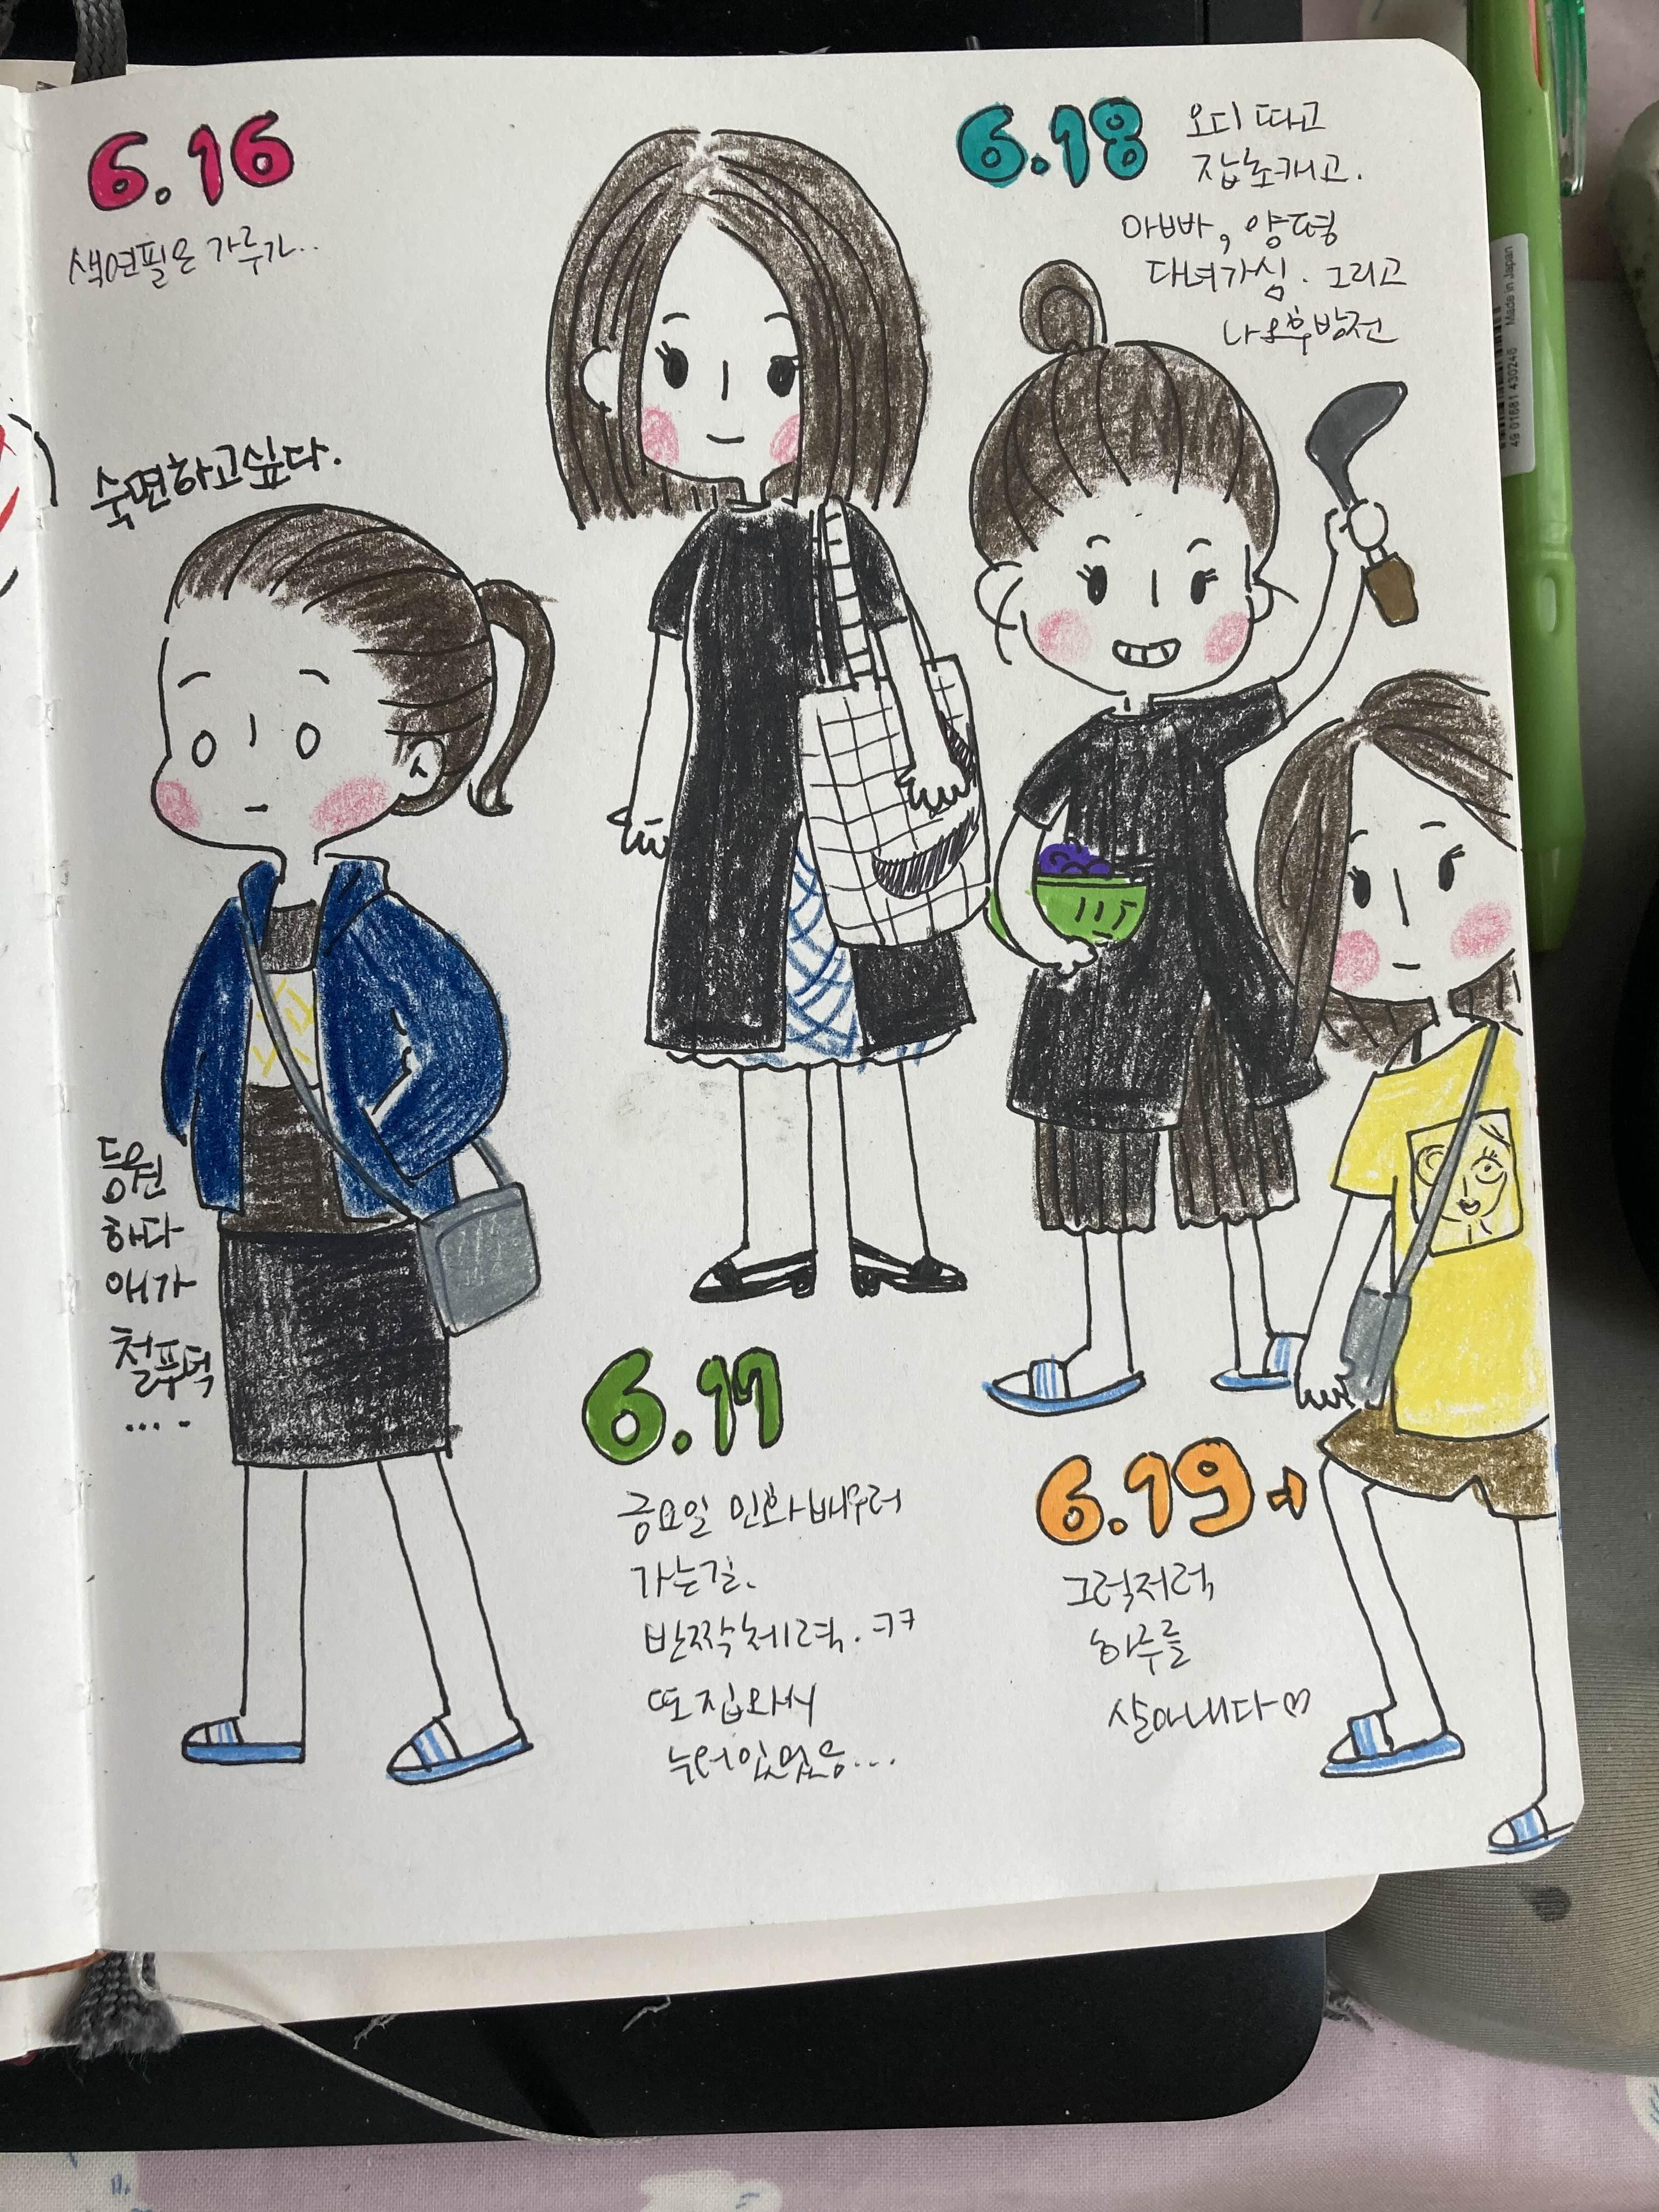 6.16
색연필은 가루가..
숙면하고싶다.
등원
하다
애가
철푸덕
....
6.17
금요일 민화배우러
가는길.
반짝체력. ㅋㅋ
또 집와서
누워있었음...
6.18
오디 따고
잡초캐고.
아빠,
다녀가심. 그리고
나 오후방전
6.19
그럭저럭
하루를
살아내다♡
Made in Japan
49 01681 430246